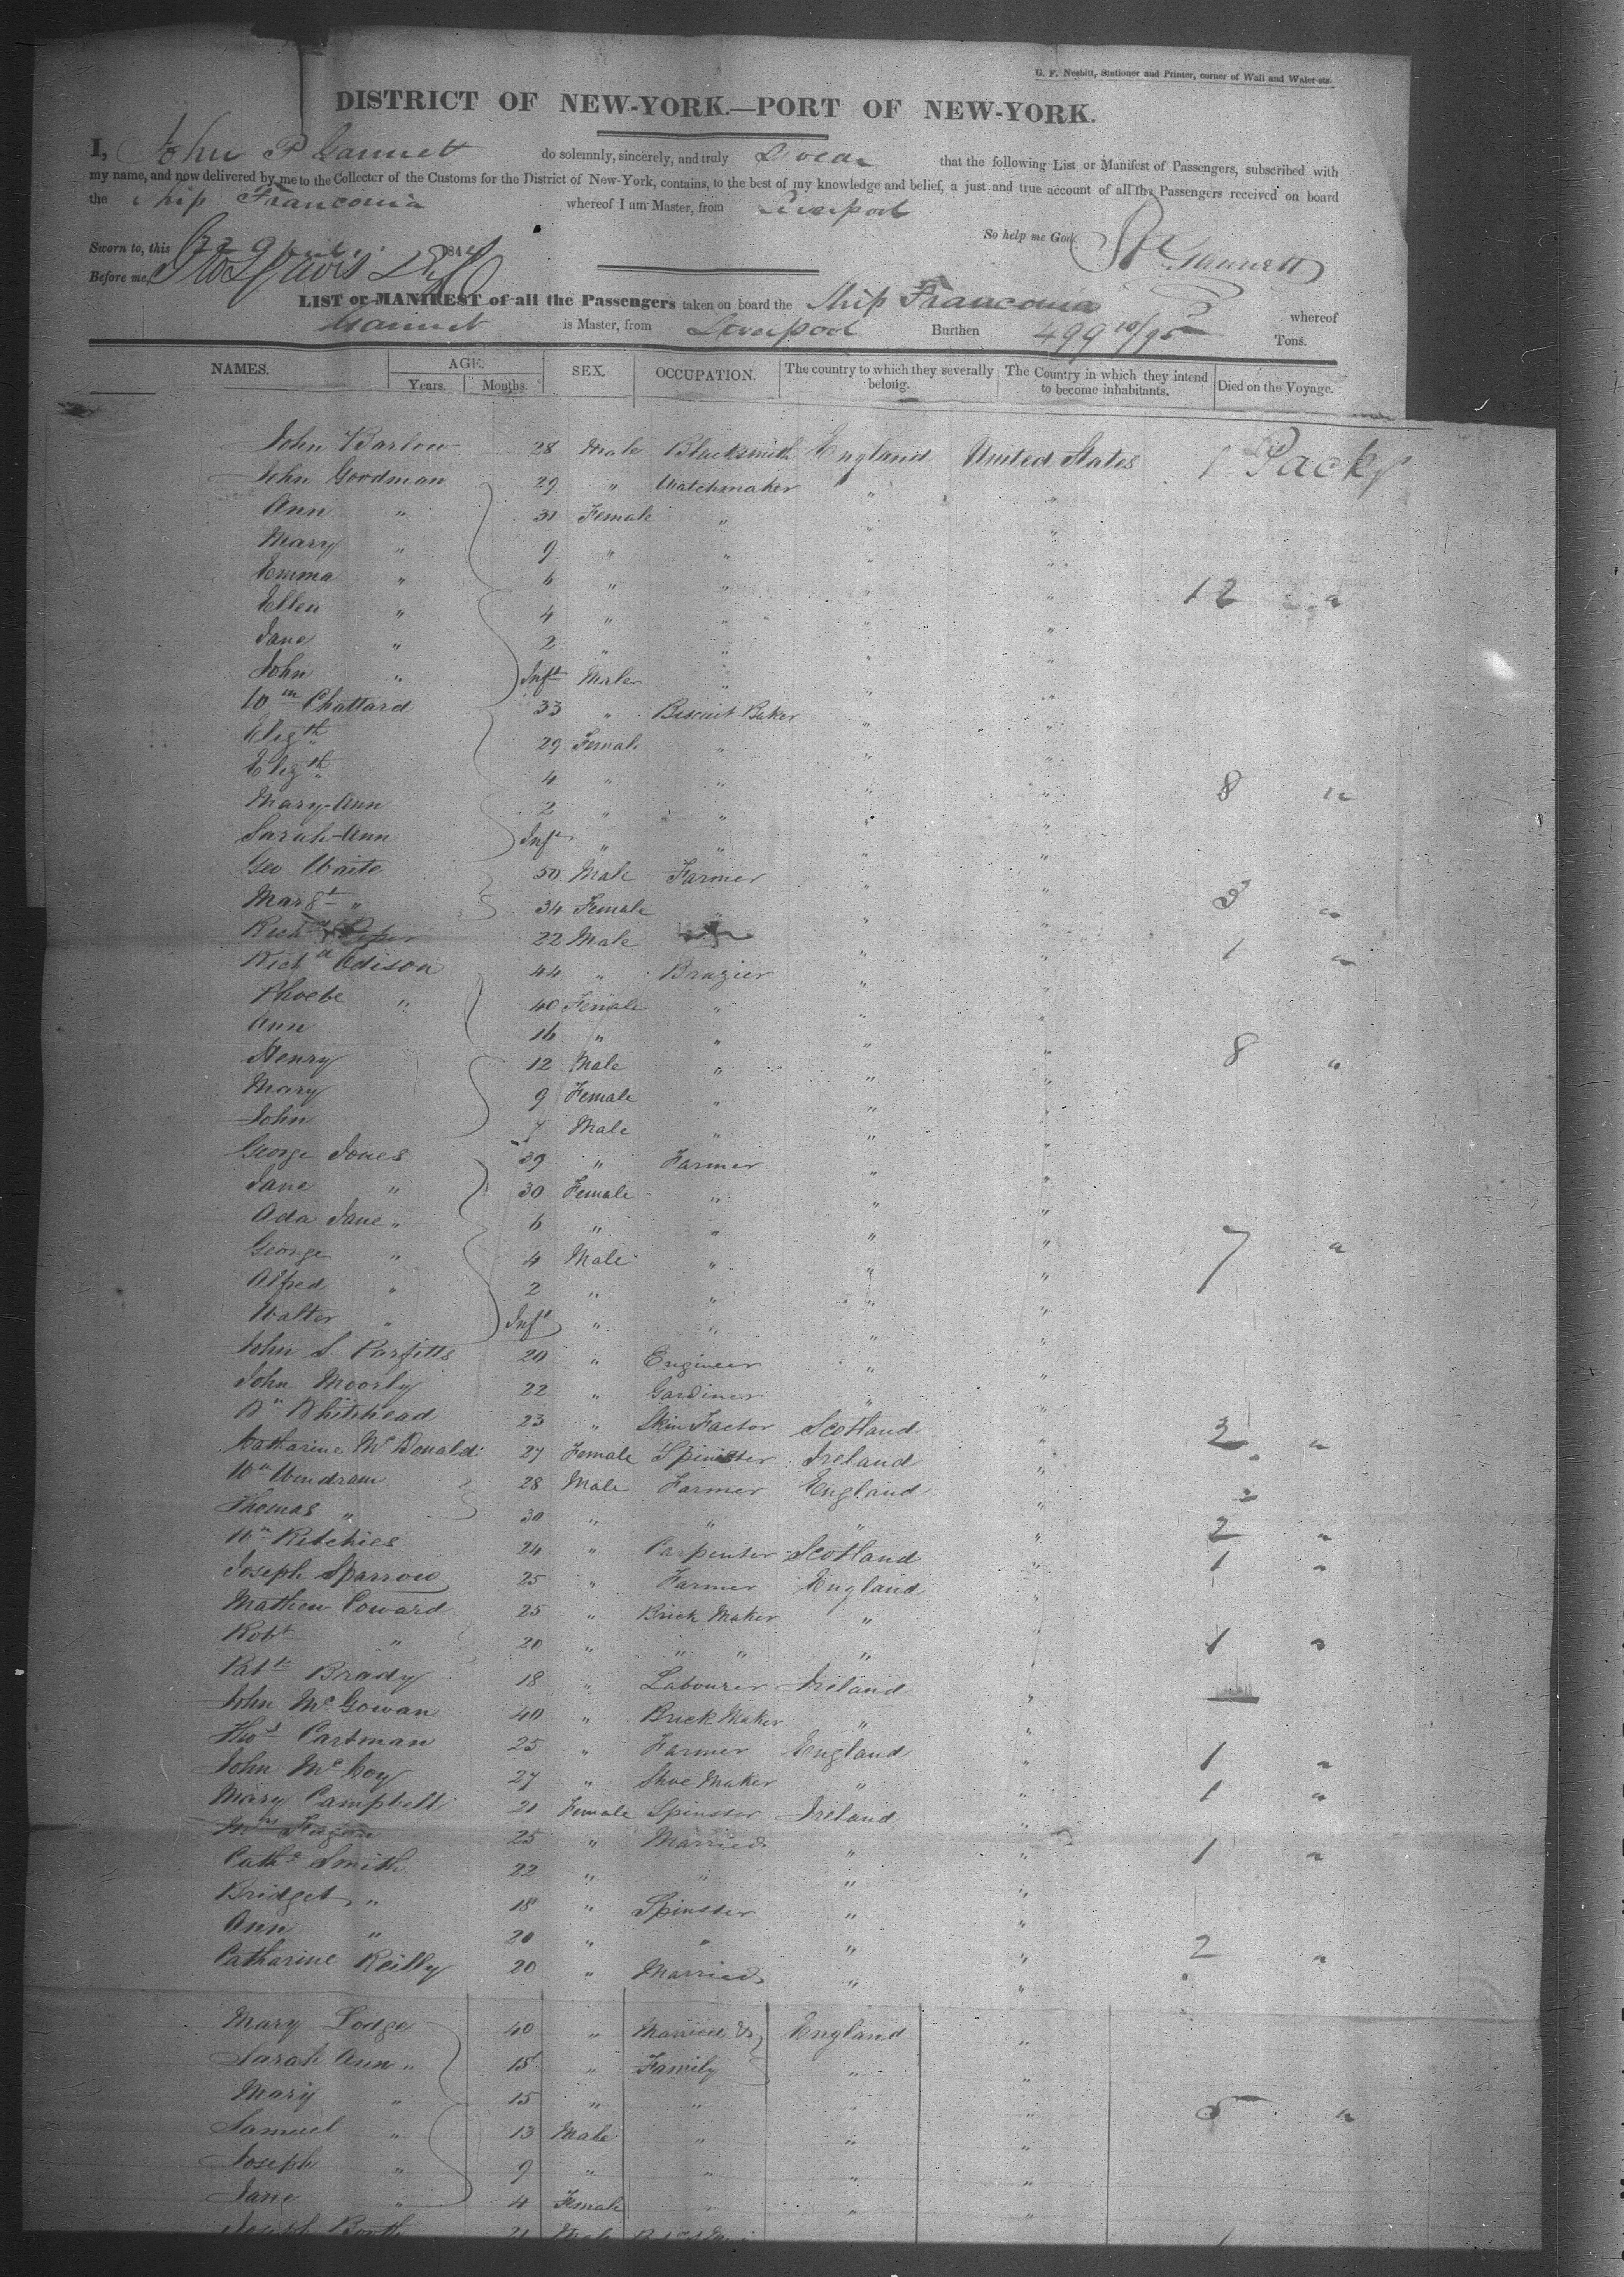 G. F. Nesbitt, Stationer and Printer, corner of Wall and Water-sts.
DISTRICT OF NEW-YORK.—PORT OF NEW-YORK.
I, John P Gannett do solemnly, sincerely, and truly Swear that the following List or Manifest of Passengers, subscribed with
my name, and now delivered by me to the Collector of the Customs for the District of New-York, contains, to the best of my knowledge and belief, a just and true account of all the Passengers received on board
the Ship Franconia whereof I am Master, from Liverpool
So help me God.
Sworn to, this 184
Before me, Gannett
LIST or MANIFEST of all the Passengers taken on board the Ship Franconia whereof
Gannett is Master, from Liverpool Burthen 499 10/95 Tons.
NAMES. AGE. SEX. OCCUPATION. The country to which they severally belong. The Country in which they intend to become inhabitants. Died on the Voyage.
Years. Months.
John Barlow 28 Male Blacksmith England United States 1 Packg
John Goodman 29 " Watchmaker " "
Ann " 31 Female " " "
Mary " 9 " " " "
Emma " 6 " " " " 12 "
Ellen " 4 " " " "
Jane " 2 " " " "
John " Inft Male " " "
Wm Chattard 33 " Biscuit Baker " "
Elizth " 29 Female " " "
Elizth " 4 " " " " 8 "
Mary-Ann 2 " " " "
Sarah-Ann Inft " " " "
Geo Waite 50 Male Farmer " "
Margt " 34 Female " " " 3 "
Richd 22 Male " " 1 "
Richd Edison 44 " Brazier " "
Phoebe " 40 Female " " "
Ann 16 " " " "
Henry 12 Male " " " 8 "
Mary 9 Female " " "
John 7 Male " " "
George Jones 39 " Farmer " "
Jane " 30 Female " " "
Ada Jane " 6 " " " "
George " 4 Male " " " 7 "
Alfred " 2 " " " "
Walter " Inft " " " "
John S. Parfitts 20 " Engineer " "
John Moorby 22 " Gardiner " "
Whitehead 23 " Skin Factor Scotland " 3 "
Catharine McDonald 27 Female Spinster Ireland "
Wm Wendram 28 Male Farmer England "
Thomas " 30 " " " " 2 "
Wm Ritchies 24 " Carpenter Scotland " 1 "
Joseph Sparrow 25 " Farmer England "
Mathew Coward 25 " Brick Maker " "
Robt " 20 " " " " " 1 "
Patk Brady 18 " Labourer Ireland "
John McGowan 40 " Brick Maker " "
Thos Cartman 25 " Farmer England " 1 "
John McCoy 27 " Shoe Maker " " 1 "
Mary Campbell 21 Female Spinster Ireland "
Mrs Fagan 25 " Married " " 1 "
Cathe Smith 22 " " " "
Bridget " 18 " Spinster " "
Ann " 20 " " " " 2 "
Catharine Reilly 20 " Married " "
Mary Lodge 40 " Married & England "
Sarah Ann " 15 " Family " "
Mary " 15 " " " " 5 "
Samuel " 13 Male " " "
Joseph " 9 " " " "
Jane " 4 Female " " "
Joseph Booth 21 Male